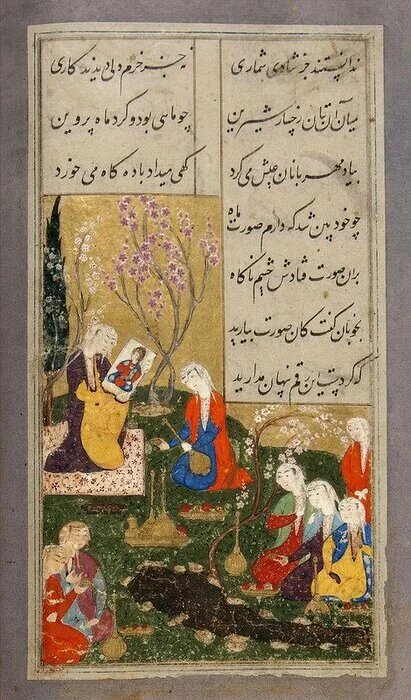 ندانستند جز شادی شماری نه جز خرم دلی دیدند کاری
میان آن بتان رخسار شیرین چو ماهی بود و گرد ماه پروین
بیاد مهربانان عیش می کرد گهی میداد باده گاه می خورد
چو خود بین شد که دارم صورت ماه
بران صورت فتادش چشم ناگاه
بخوبان گفت کان صورت بیارید
که کردست این رقم پنهان مدارید